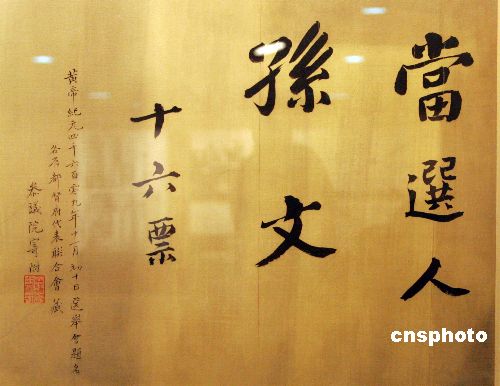 當選人
孫文
十六票
黃帝紀元四千六百零九年十一月初十日選舉會題名
各省都督府代表聯合會藏
叅議院寄
cnsphoto